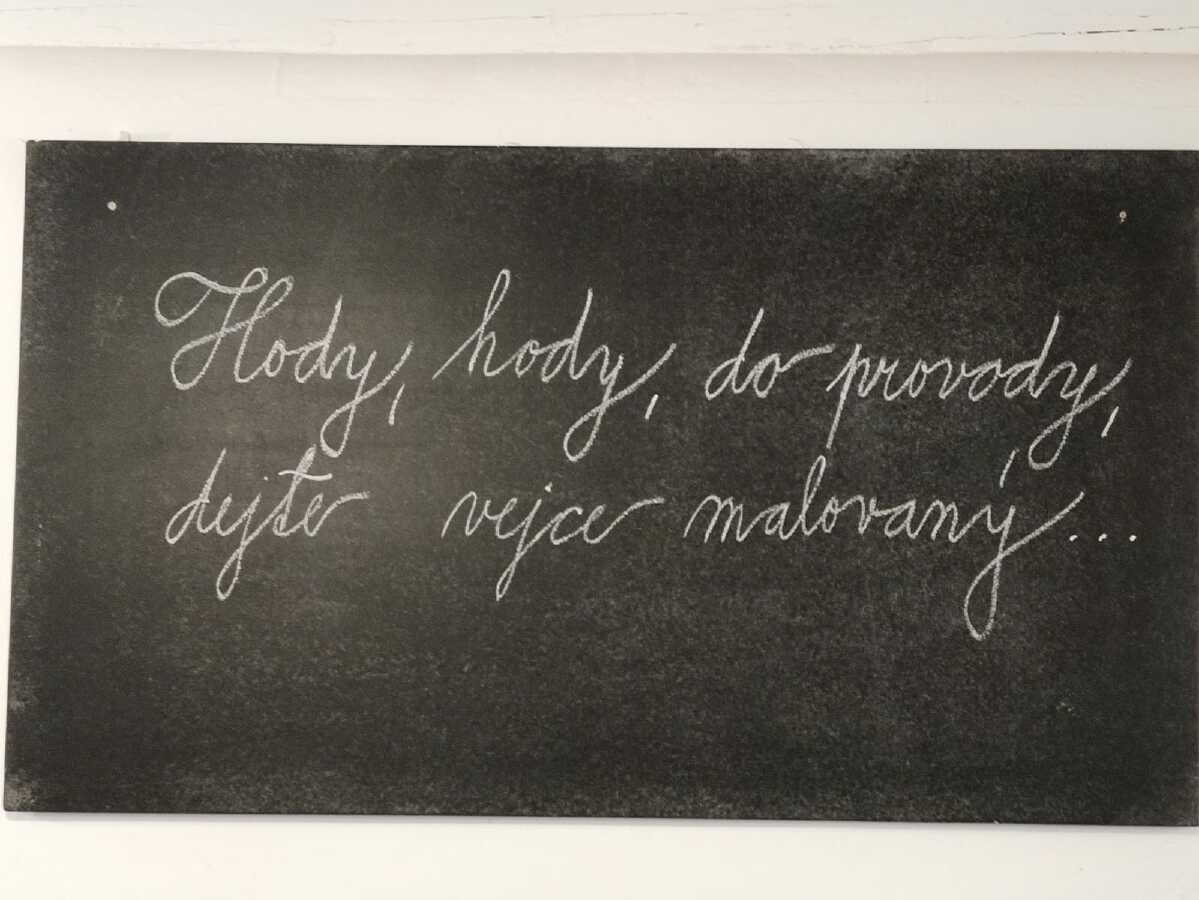 Hody, hody, do provody,
dejte vejce malovaný...